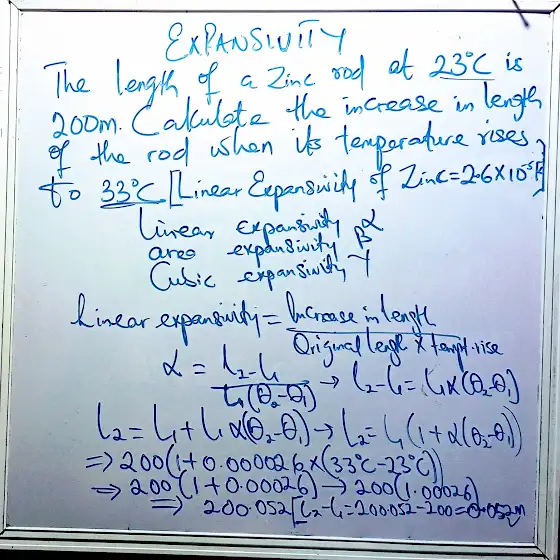 EXPANSIVITY
The length of a Zinc rod at 23°C is
200m. Calculate the increase in length
of the rod when its temperature rises
to 33°C [Linear Expansivity of Zinc=2.6X10⁻⁵/K]
Linear expansivity α
area expansivity β
Cubic expansivity γ
Linear expansivity = Increase in length
Original length X tempt. rise
α = L₂-L₁
L₁(θ₂-θ₁) → L₂-L₁=L₁α(θ₂-θ₁)
L₂ = L₁ + L₁α(θ₂-θ₁) → L₂=L₁(1+α(θ₂-θ₁))
⇒ 200(1+0.000026x(33°C-23°C))
⇒ 200(1+0.00026) → 200(1.00026)
⇒ 200.052[L₂-L₁=200.052-200=0.052m